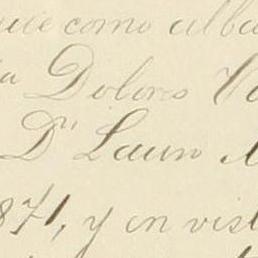 que como alba
a Dolores V
Dn Laun
871, y en vist